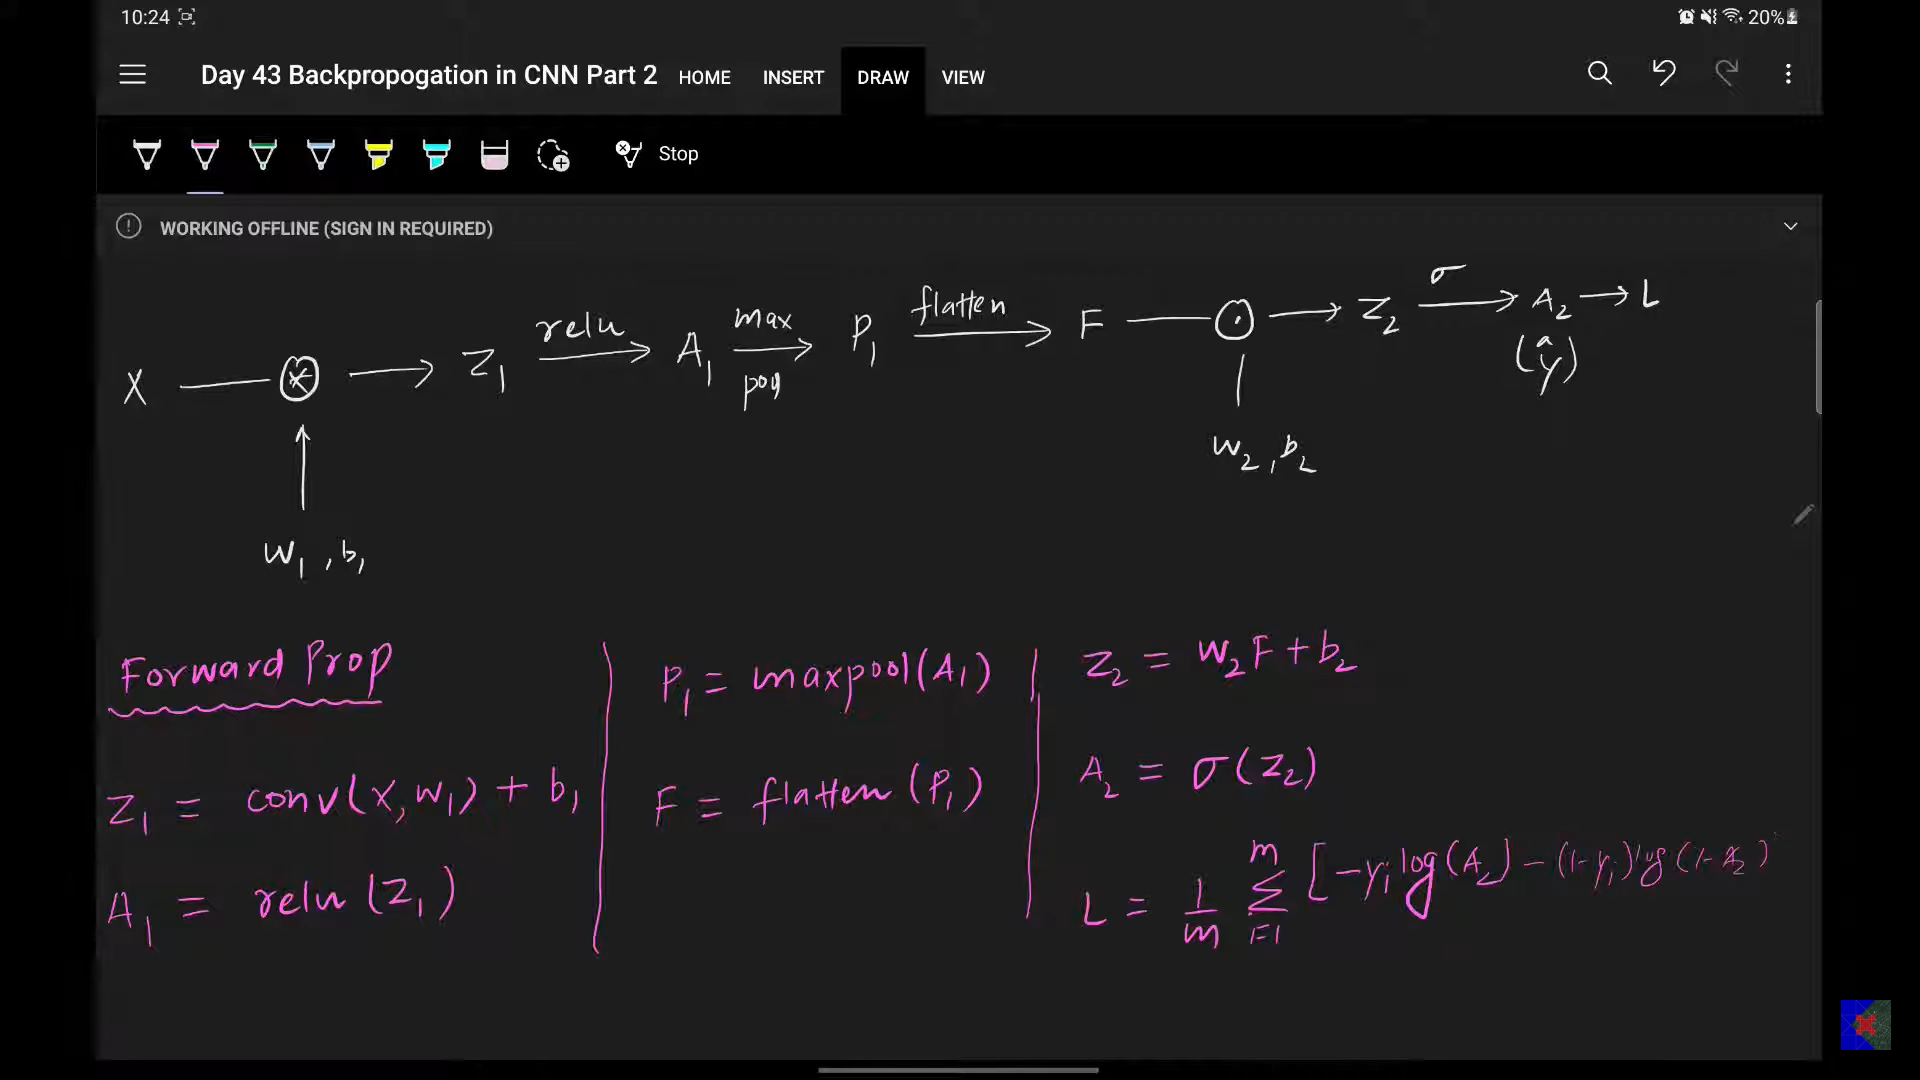 10:24 20%
Day 43 Backpropogation in CNN Part 2 HOME INSERT DRAW VIEW
Stop
WORKING OFFLINE (SIGN IN REQUIRED)
X ⊛ → Z₁ relu → A₁ max pog → P₁ flatten → F ⊙ → Z₂ σ → A₂ → L
(ŷ)
W₁, b₁
W₂, b₂
Forward Prop
Z₁ = conv(X, W₁) + b₁
A₁ = relu (Z₁)
P₁ = maxpool(A₁)
F = flatten (P₁)
Z₂ = W₂F + b₂
A₂ = σ(Z₂)
L = 1/m Σ m i=1 [-yᵢ log(A₂) - (1-yᵢ) log (1-A₂)